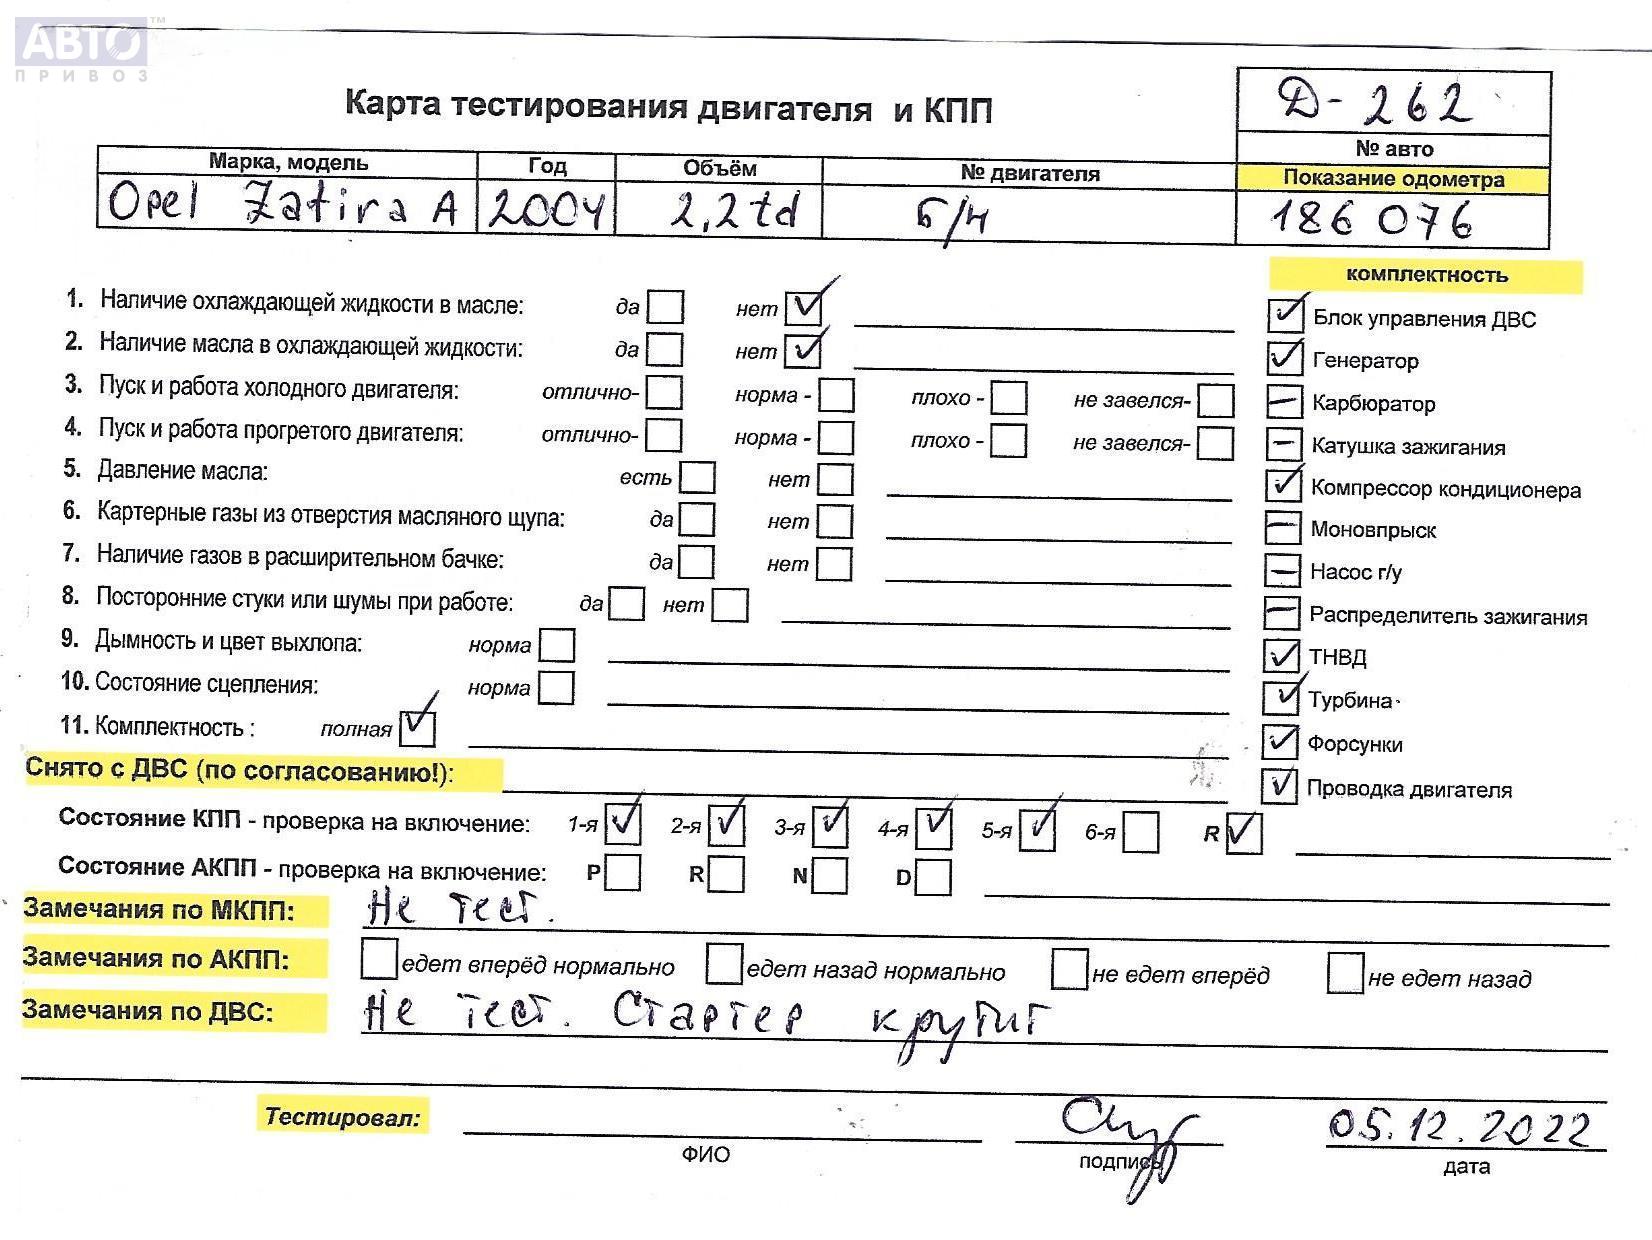 АВТО™
ПРИВОЗ
Карта тестирования двигателя и КПП
Д-262
№ авто
Марка, модель Год Объём № двигателя Показание одометра
Opel Zafira A 2004 2,2td Б/Н 186 076
комплектность
1. Наличие охлаждающей жидкости в масле: да нет ✓
2. Наличие масла в охлаждающей жидкости: да нет ✓
3. Пуск и работа холодного двигателя: отлично- норма - плохо - не завелся-
4. Пуск и работа прогретого двигателя: отлично- норма - плохо - не завелся-
5. Давление масла: есть нет
6. Картерные газы из отверстия масляного щупа: да нет
7. Наличие газов в расширительном бачке: да нет
8. Посторонние стуки или шумы при работе: да нет
9. Дымность и цвет выхлопа: норма
10. Состояние сцепления: норма
11. Комплектность : полная ✓
✓ Блок управления ДВС
✓ Генератор
– Карбюратор
– Катушка зажигания
✓ Компрессор кондиционера
– Моновпрыск
– Насос г/у
– Распределитель зажигания
✓ ТНВД
✓ Турбина
✓ Форсунки
✓ Проводка двигателя
Снято с ДВС (по согласованию!):
Состояние КПП - проверка на включение: 1-я ✓ 2-я ✓ 3-я ✓ 4-я ✓ 5-я ✓ 6-я R ✓
Состояние АКПП - проверка на включение: P R N D
Замечания по МКПП: Не тест.
Замечания по АКПП: едет вперёд нормально едет назад нормально не едет вперёд не едет назад
Замечания по ДВС: Не тест. Стартер крутит
Тестировал: 05.12.2022
ФИО подпись дата